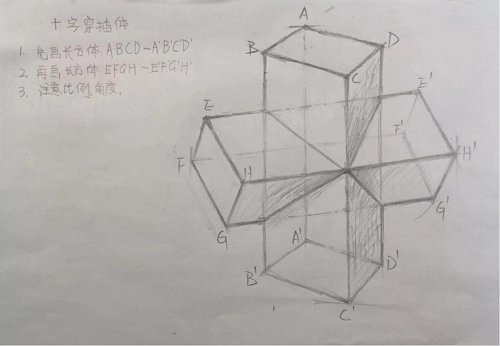 十字穿插体
1. 先画长方体 ABCD-A'B'C'D'
2. 再画长方体 EFGH-E'F'G'H'
3. 注意比例,角度。
A
B
D
C
E
E'
F
F'
H
H'
G
G'
A'
B'
D'
C'